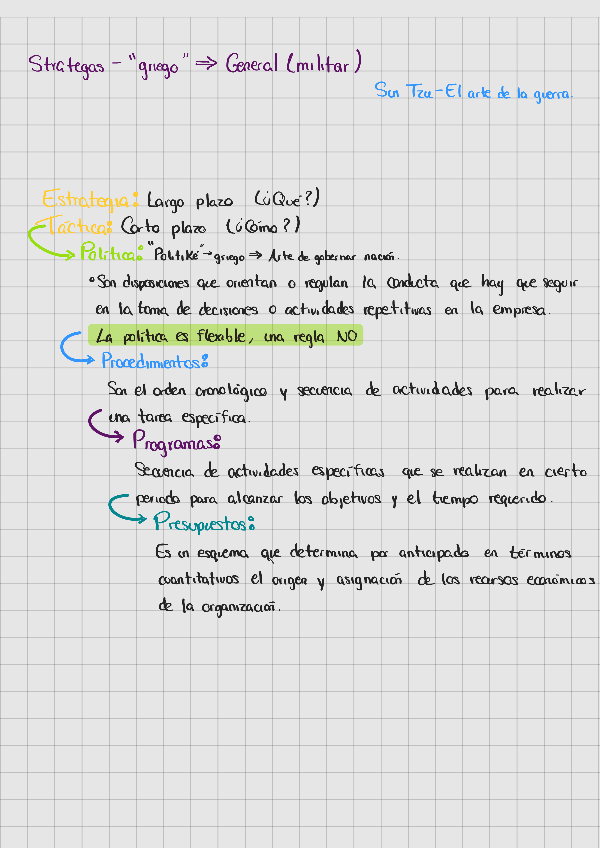 Strategas - "griego" ⇒ General (militar)
Sun Tzu - El arte de la guerra.
Estrategia: Largo plazo (¿Qué?)
Táctica: Corto plazo (¿Cómo?)
Política: "Politiké" → griego ⇒ Arte de gobernar nación.
° Son disposiciones que orientan o regulan la conducta que hay que seguir
en la toma de decisiones o actividades repetitivas en la empresa.
La política es flexible, una regla NO
Procedimientos:
Son el orden cronológico y secuencia de actividades para realizar
una tarea específica.
Programas:
Secuencia de actividades específicas que se realizan en cierto
periodo para alcanzar los objetivos y el tiempo requerido.
Presupuestos:
Es un esquema que determina por anticipado en términos
cuantitativos el origen y asignación de los recursos económicos
de la organización.